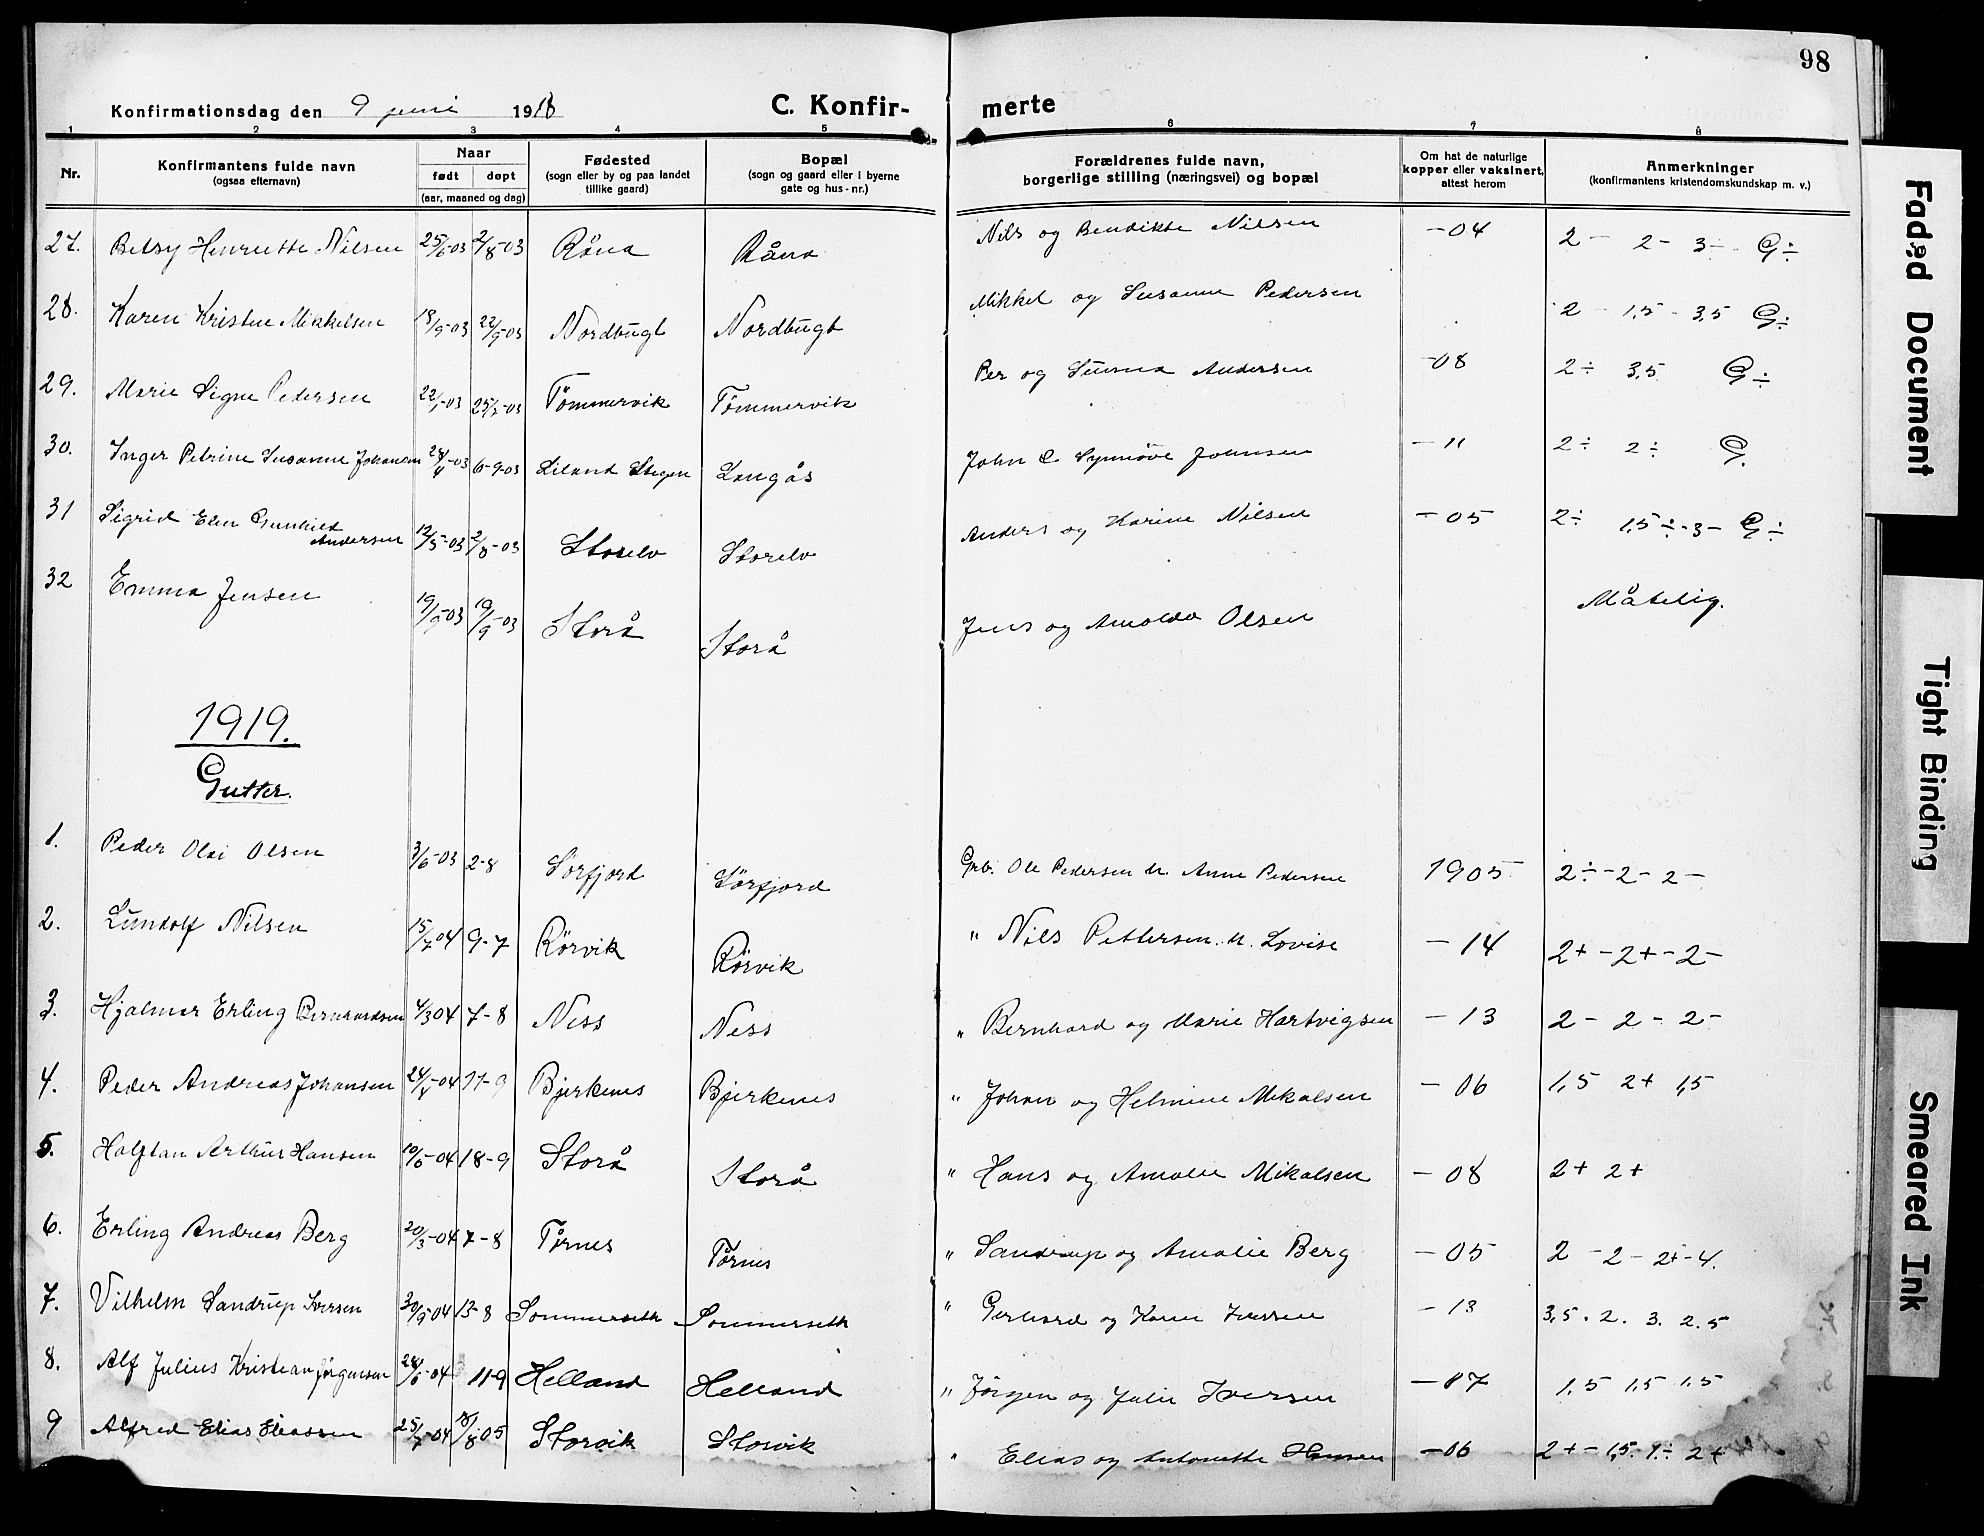 98
Konfirmationsdag den 9 juni 1918 C. Konfir- merte
1 2 3 4 5 6 7 8
Nr. Konfirmantens fulde navn (ogsaa efternavn) Naar født døpt (aar, maaned og dag) Fødested (sogn eller by og paa landet tillike gaard) Bopæl (sogn og gaard eller i byerne gate og hus-nr.) Forældrenes fulde navn, borgerlige stilling (næringsvei) og bopæl Om hat de naturlige kopper eller vaksinert, attest herom Anmerkninger (konfirmantens kristendomskundskap m. v.)
27. Betsy Henriette Nilsen 25/6-03 2/8-03 Råna Råna Nils og Bendikte Nilsen -04 2 - 2 - 3 - G÷
28. Karen Kristine Mikkelsen 18/9-03 22/9-03 Nordbugt Nordbugt Mikkel og Susanne Pedersen 2 - 1,5 - 3,5 G÷
29. Marie Signe Pedersen 22/1-03 25/2-03 Tömmervik Tömmervik Per og Andersen -08 2÷ 3,5 G÷
30. Inger Petrine Susanne Johansen 28/4-03 6-9-03 Leland Stegen Langås John & Synnöve Johnsen - 11 2÷ 2÷ G.
31 Sigrid Elen Gunhild Andersen 12/5-03 2/8-03 Storelv Storelv Anders og Karine Nilsen - 05 2÷ 1,5÷-3- G÷
32 Emma Jensen 19/9-03 19/9-03 Storå Storå Jens og Arnolda Olsen Måtelig.
1919.
Gutter.
1. Peder Olai Olsen 3/6-03 2-8 Sörfjord Sörfjord Grb. Ole Pedersen m Anne Pedersen 1905 2÷-2-2-
2. Lundolf Nilsen 15/7-04 9-7 Rörvik Rörvik " Nils Pettersen m. Lovise - 14 2+-2+-2-
3. Hjalmar Erling Bernhardsen 4/3 04 7-8 Ness Ness " Bernhard og Marie Hartvigsen - 13 2 - 2 - 2 -
4. Peder Andreas Johansen 24/8-04 11-9 Bjerkenes Bjerkenes " Johan og Helmine Mikalsen - 06 1,5 2+ 1,5
5. Halftan Arthur Hansen 10/6-04 18-9 Storå Storå " Hans og Amalie Mikalsen - 08 2+ 2+
6. Erling Andreas Berg 20/3-04 7-8 Törnes Törnes " Sandrup og Amalie Berg - 05 2 - 2 - 2+-4.
7. Vilhelm Sandrup Iversen 30/9-04 13-8 Sommerseth Sommerseth " Gerhard og Iversen - 13 3,5. 2. 3. 2.5
8. Alf Julius Kristian Jörgensen 28/6-04 11-9 Helland Helland " Jörgen og Julie Iversen -07 1,5 1,5 1.5
9 Alfred Elias Eliassen 25/7-04 18/8 05 Storvik Storvik " Elias og Antonette Hansen -06 2+- 1,5. 1÷ 2+
Faded Document
Tight Binding
Smeared Ink